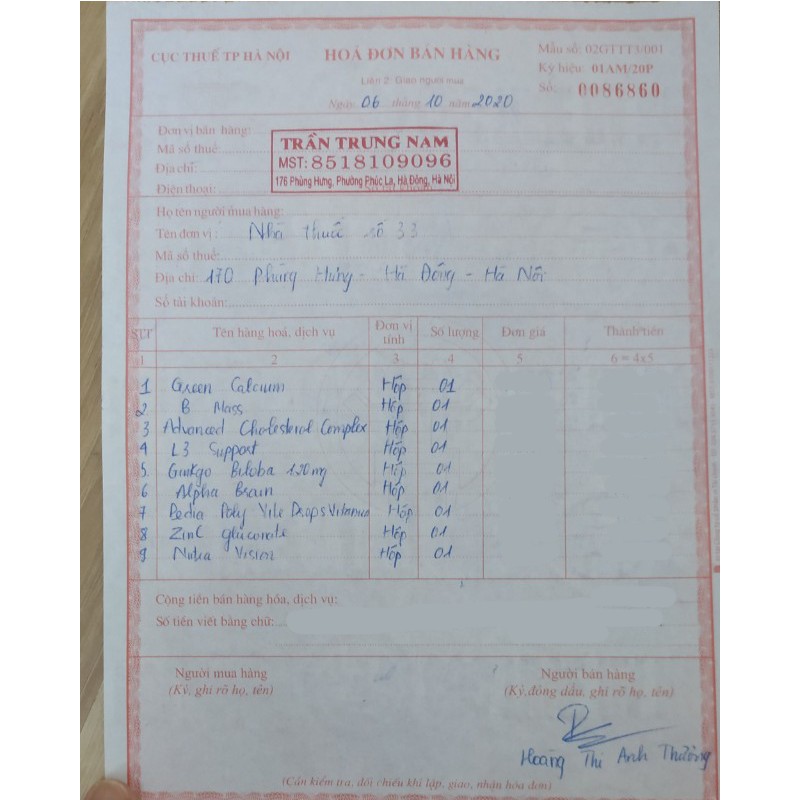 CỤC THUẾ TP HÀ NỘI
HOÁ ĐƠN BÁN HÀNG
Mẫu số: 02GTTT3/001
Liên 2: Giao người mua
Ký hiệu: 01AM/20P
Ngày 06 tháng 10 năm 2020
Số: 0086860
Đơn vị bán hàng:
Mã số thuế:
Địa chỉ:
Điện thoại:
TRẦN TRUNG NAM
MST: 8518109096
176 Phùng Hưng, Phường Phúc La, Hà Đông, Hà Nội
Họ tên người mua hàng:
Tên đơn vị: Nhà thuốc số 33
Mã số thuế:
Địa chỉ: 170 Phùng Hưng - Hà Đông - Hà Nội
Số tài khoản:
STT Tên hàng hoá, dịch vụ Đơn vị tính Số lượng Đơn giá Thành tiền
1 2 3 4 5 6 = 4x5
1 Green Calcium Hộp 01
2 B Mass Hộp 01
3 Advanced Cholesterol Complex Hộp 01
4 L3 Support Hộp 01
5 Ginkgo Biloba 120mg Hộp 01
6 Alpha Brain Hộp 01
7 Pedia Poly Vite Drops Vitamin Hộp 01
8 Zinc gluconate Hộp 01
9 Nutra Vision Hộp 01
Cộng tiền bán hàng hóa, dịch vụ:
Số tiền viết bằng chữ:
Người mua hàng
(Ký, ghi rõ họ, tên)
Người bán hàng
(Ký, đóng dấu, ghi rõ họ, tên)
Hoàng Thị Anh Thường
(Cần kiểm tra, đối chiếu khi lập, giao, nhận hóa đơn)